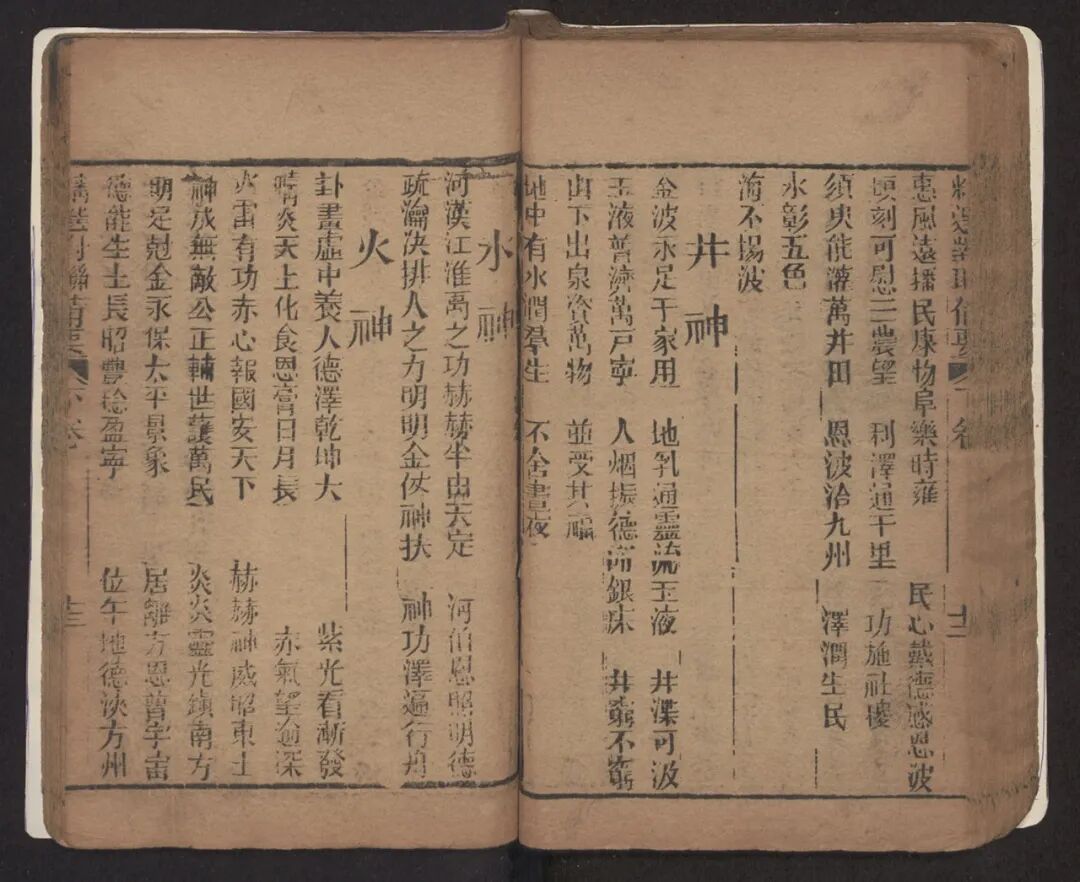 惠風遠播民康物阜樂時雍 民心戴德感恩波
頃刻可慰三農望 利澤通千里 功施社稷
須臾能灌萬井田 恩波洽九州 澤潤生民
水彰五色
海不揚波
井神
金波永足千家用 地乳通靈流玉液 井渫可汲
玉液普濟萬戶寧 人烟振德 銀床 井窮不窮
山下出泉資萬物 並受其福
地中有水潤羣生 不舍晝夜
水神
河漢江淮禹之功赫赫 定 河伯恩昭明德
疏瀹決排人之力明明金仗神扶 神功澤遍行舟
火神
卦畫虛中養人德澤乾坤大 紫光看漸發
晴炎天上化食恩膏日月長 赤氣望逾深
火雷有功赤心報國安天下 赫赫神威昭東土
神放無敵公正輔世護萬民 炎炎靈光鎮南方
期定尅金永保太平景象 居離方恩普宇宙
德能生土長昭豐稔盈寧 位午地德浹方州
下卷